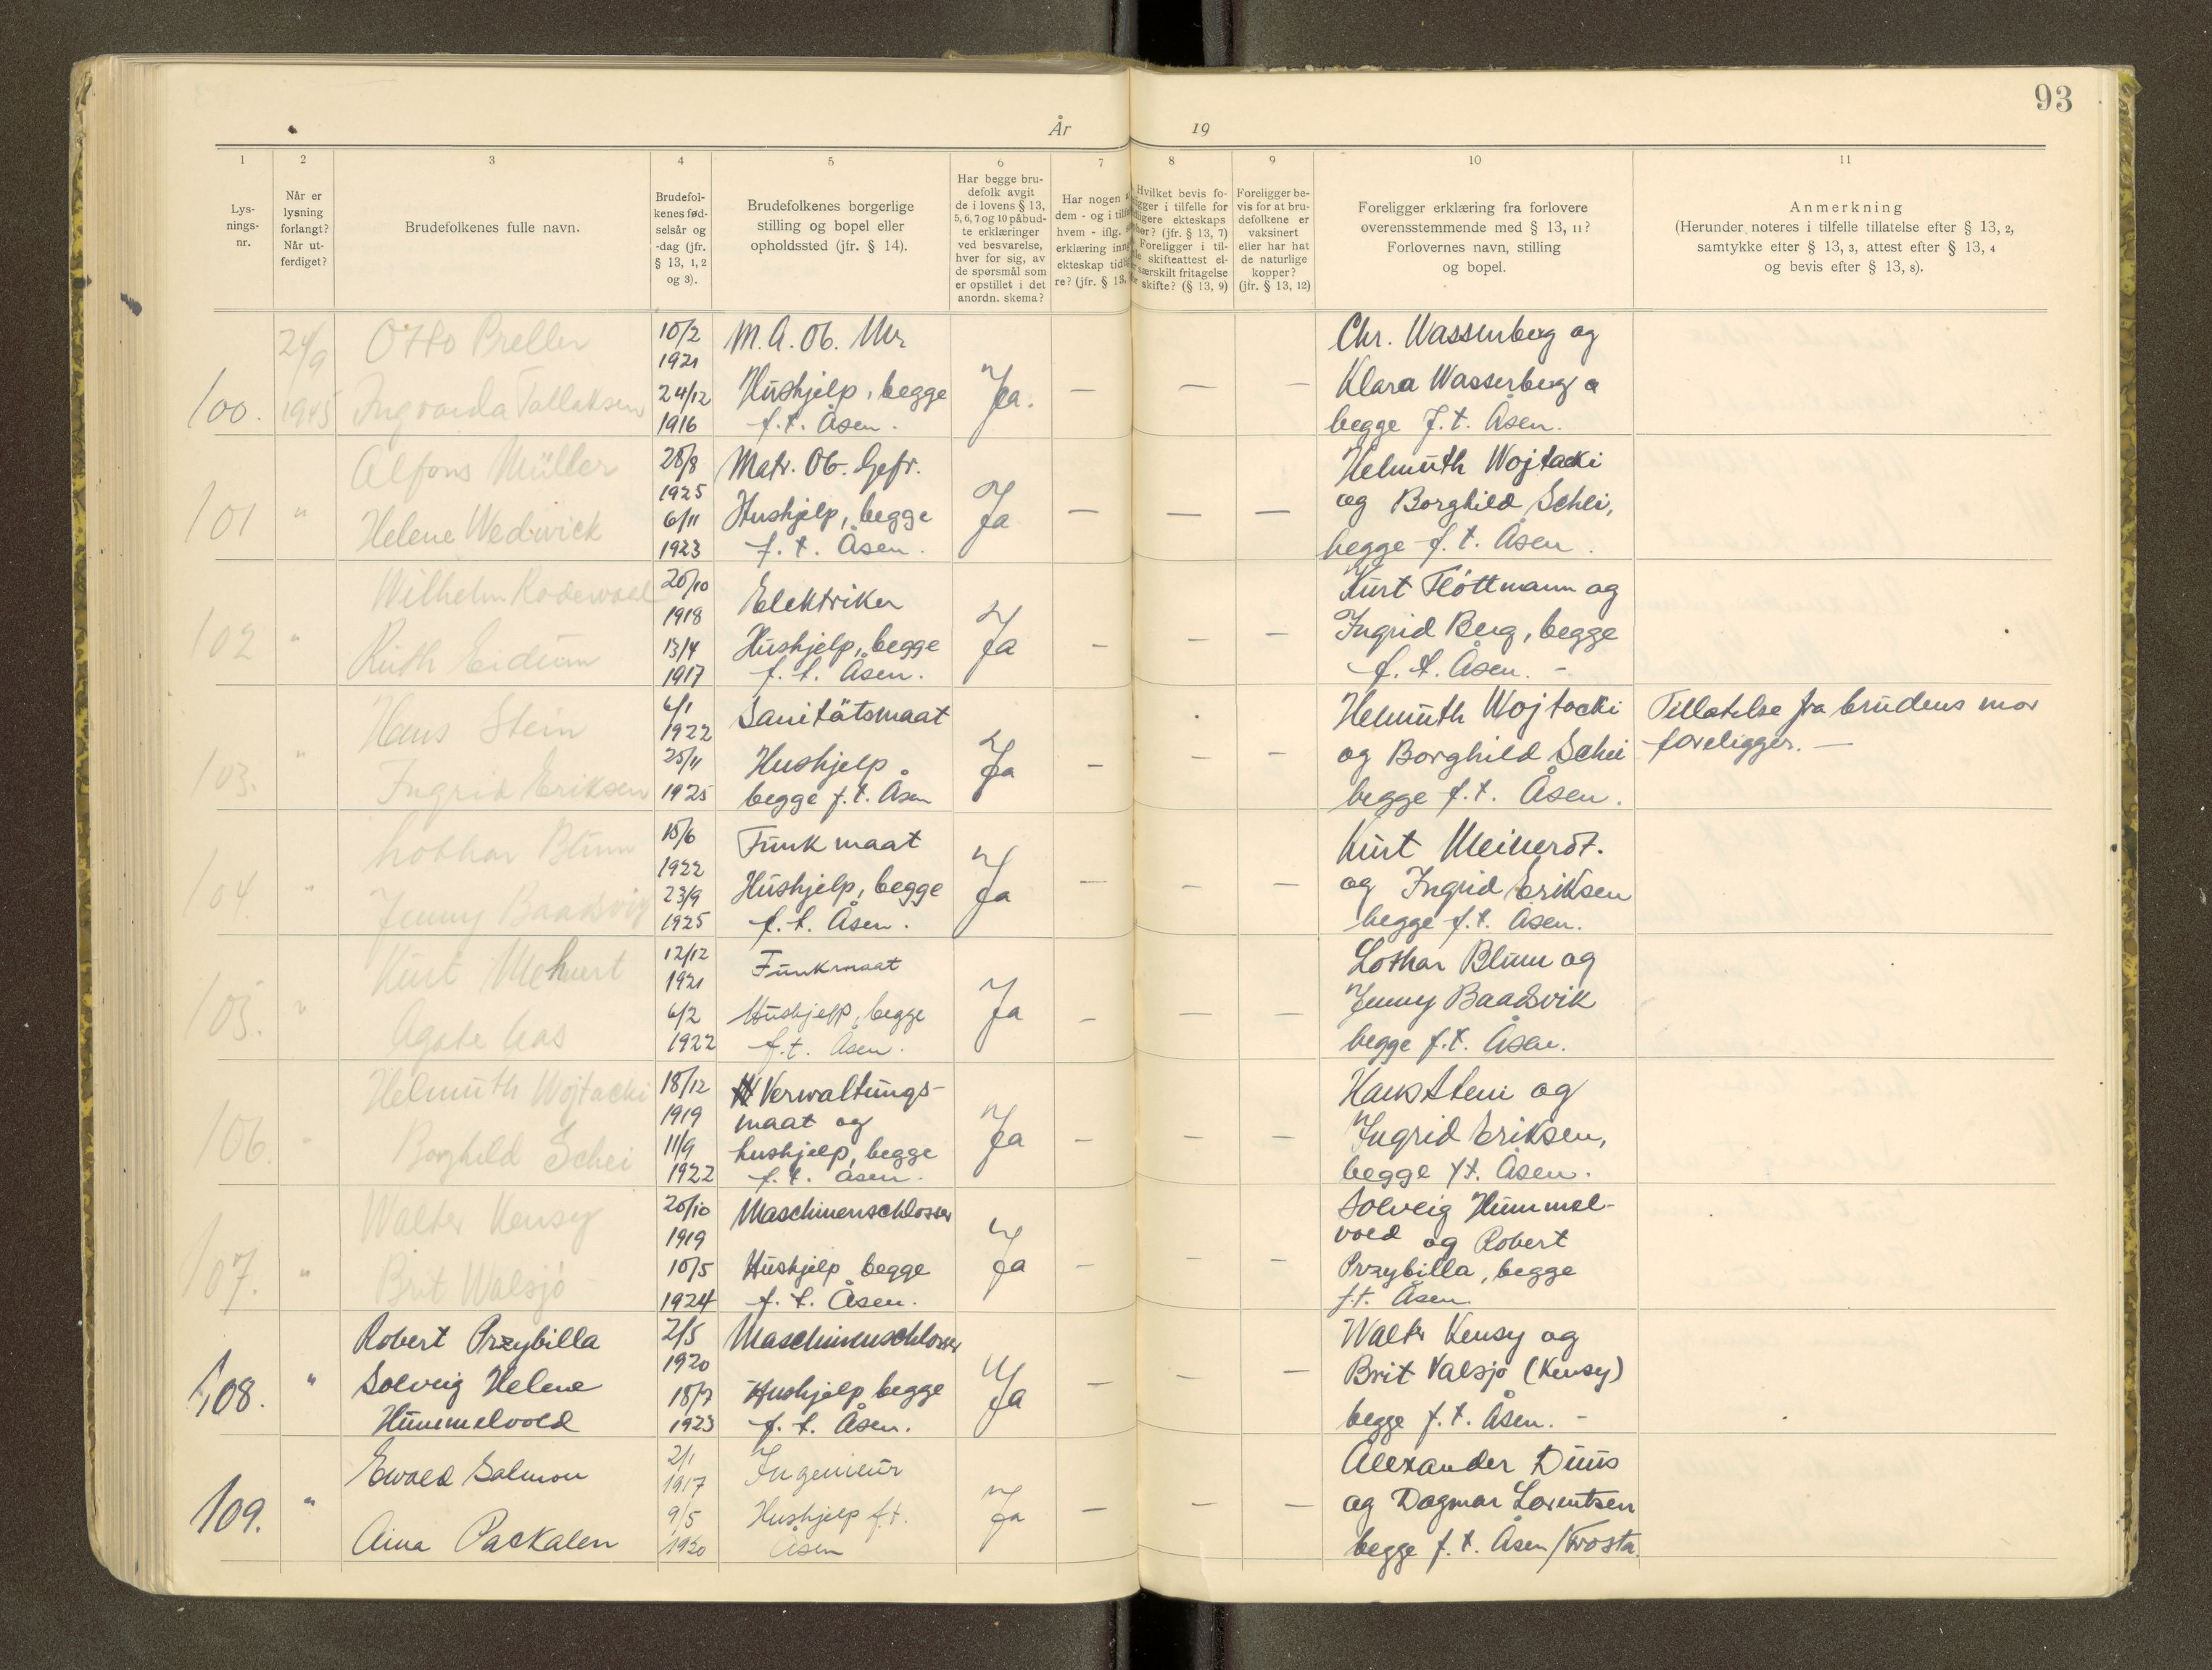 93
År 19
1 2 3 4 5 6 7 8 9 10 11
Lys-
nings-
nr.
Når er
lysning
forlangt?
Når ut-
ferdiget?
Brudefolkenes fulle navn.
Brudefol-
kenes fød-
selsår og
-dag (jfr.
§ 13, 1, 2
og 3).
Brudefolkenes borgerlige
stilling og bopel eller
opholdssted (jfr. § 14).
Har begge bru-
defolk avgit
de i lovens § 13,
5, 6, 7 og 10 påbud-
te erklæringer
ved besvarelse,
hver for sig, av
de spørsmål som
er opstillet i det
anordn. skema?
Har nogen
dem - og i
hvem - iflg.
erklæring
ekteskap
re? (jfr. § 13,
Hvilket bevis fo-
i tilfelle for
ekteskaps
(jfr. § 13, 7)
Foreligger i til-
skifteattest el-
særskilt fritagelse
skifte? (§ 13, 9)
Foreligger be-
vis for at bru-
defolkene er
vaksinert
eller har hat
de naturlige
kopper?
(jfr. § 13, 12)
Foreligger erklæring fra forlovere
overensstemmende med § 13, 11?
Forlovernes navn, stilling
og bopel.
Anmerkning
(Herunder noteres i tilfelle tillatelse efter § 13, 2,
samtykke efter § 13, 3, attest efter § 13, 4
og bevis efter § 13, 8).
100.
24/9
1945
Otto Preller
Ingvarda Tallaksen
10/2
1921
24/12
1916
M.A. Ob.
Hushjelp, begge
f.t. Åsen.
Ja. — — —
Chr. Wassenberg og
Klara Wasserberg
begge f.t. Åsen.
101 "
Alfons Müller
Helene Wedwick
28/8
1925
6/11
1923
Matr. Ob. Gefr.
Hushjelp, begge
f.t. Åsen.
Ja — — —
Helmuth Wojtacki
og Borghild Schei,
begge f.t. Åsen.
102 "
Wilhelm Rodewald
Ruth Eidum
20/10
1918
13/4
1917
Elektriker
Hushjelp, begge
f.t. Åsen.
Ja - - —
Kurt Flöttmann og
Ingrid Berg, begge
f.t. Åsen. -
103. "
Hans Stein
Ingrid Eriksen
6/1
1922
25/11
1925
Sanitätsmaat
Hushjelp
begge f.t. Åsen
Ja - - -
Helmuth Wojtacki
og Borghild Schei
begge f.t. Åsen.
Tillatelse fra brudens mor
foreligger. —
104 "
Lothar Blum
Jenny Baadsvig
15/6
1922
23/9
1925
Funkmaat
Hushjelp, begge
f.t. Åsen.
Ja - - -
Kurt
og Ingrid Eriksen
begge f.t. Åsen.
105. "
Kurt
Agate
12/12
1921
6/2
1922
Funkmaat
Hushjelp, begge
f.t. Åsen.
Ja - - —
Lothar Blum og
Jenny Baadsvik
begge f.t. Åsen.
106. "
Helmuth Wojtacki
Borghild Schei
18/12
1919
11/9
1922
Verwaltungs-
maat og
hushjelp, begge
f.t. Åsen.
Ja - - —
Hans Stein og
Ingrid Eriksen,
begge f.t. Åsen.
107. "
Walter Kensy
Brit Walsjö
20/10
1919
10/5
1924
Maschinenschlosser
Hushjelp begge
f.t. Åsen.
Ja - - -
Solveig Hummel-
vold og Robert
Przybilla, begge
f.t. Åsen.
108. "
Robert Przybilla
Solveig Helene
Hummelvold
2/5
1920
18/7
1923
Maschinenschlosser
Hushjelp begge
f.t. Åsen.
Ja — - —
Walter Kensy og
Brit Valsjö (Kensy)
begge f.t. Åsen. -
109. "
Ewald Salmon
Aina Packalen
2/1
1917
9/5
1920
Ingenieur
Hushjelp f.t.
Åsen
Ja — — —
Alexander Duus
og Dagmar Lorentsen
begge f.t. Åsen/Frosta.